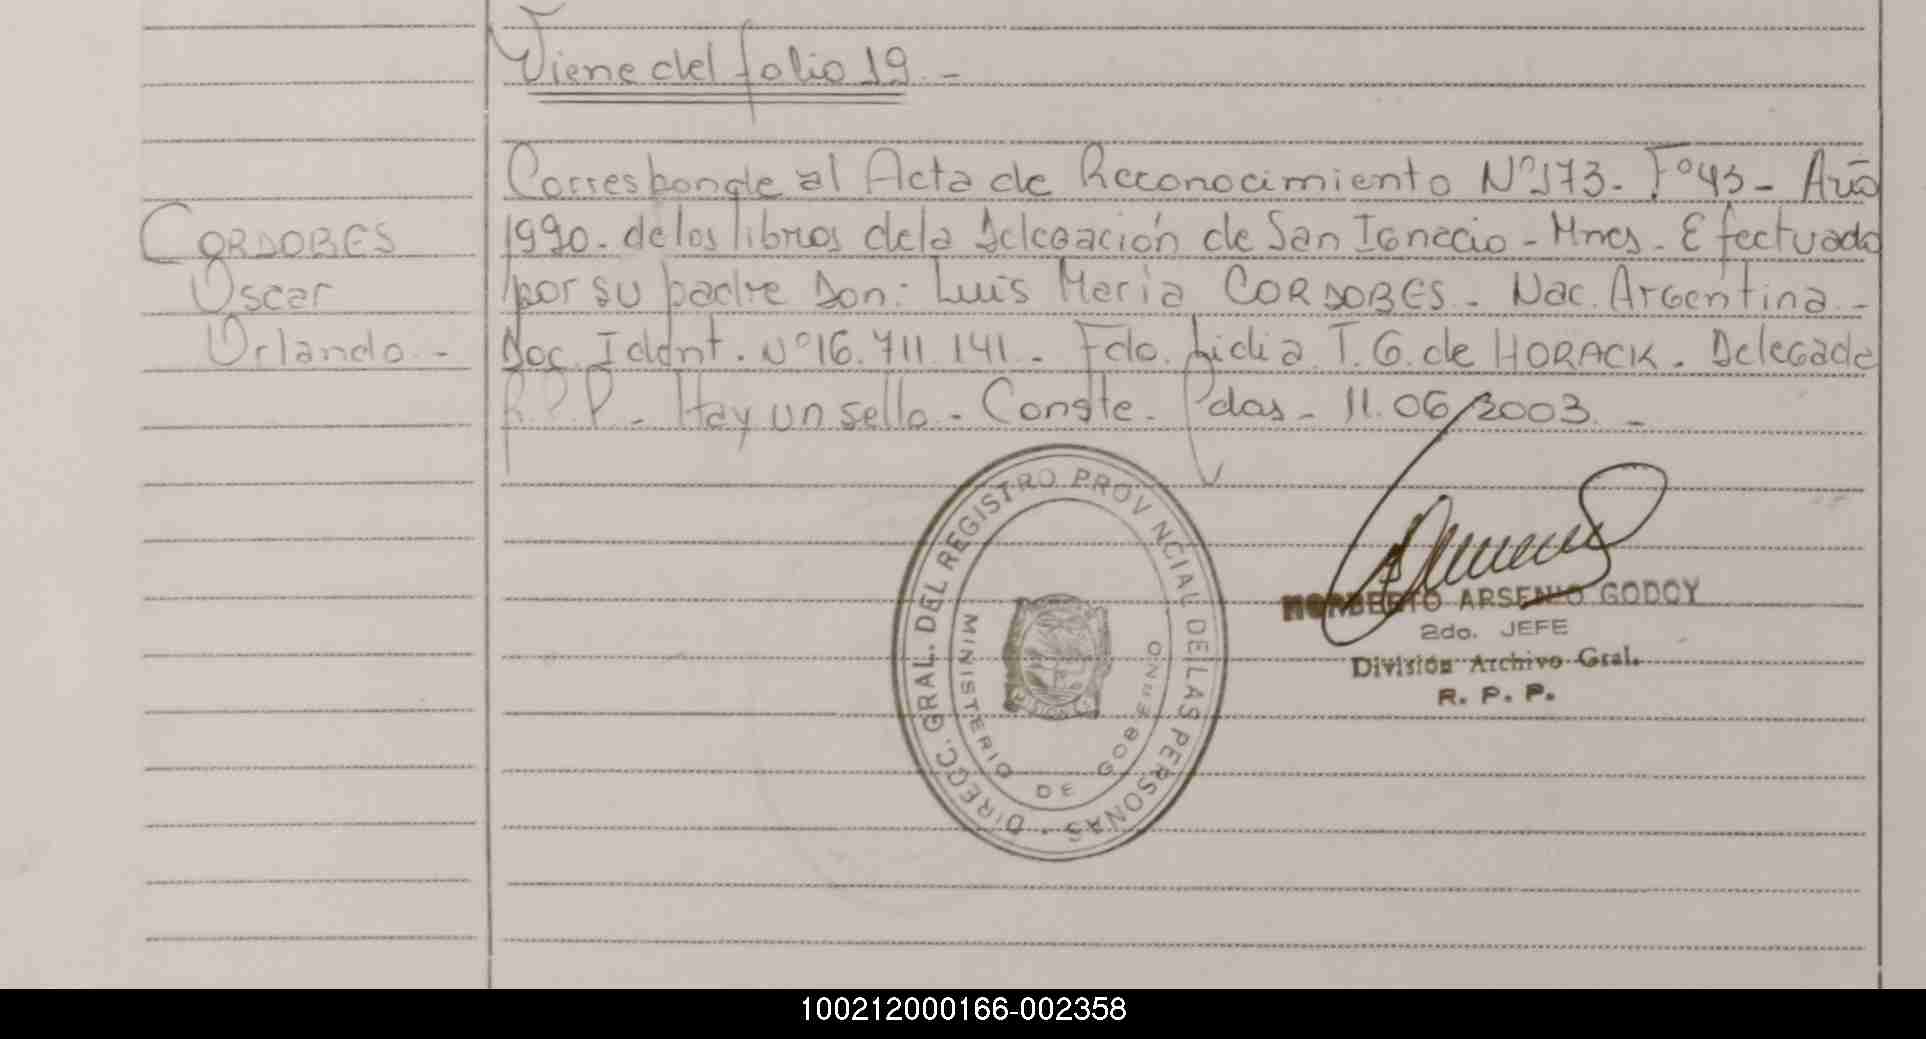 Viene del folio 19.-
Corresponde al Acta de Reconocimiento Nº173. Fº43- Año
CORDOBES
1990. de los libros de la Delegación de San Ignacio - Mnes. Efectuado
Oscar
por su padre Don: Luis Maria CORDOBES. Nac. Argentina.-
Orlando.-
Doc. Iddnt. Nº16.711.141. Fdo. Lidia T. G. de HORACK. Delegada
R.P.P.- Hay un sello.- Conste. Pdas- 11.06/2003.-
DIRECC. GRAL. DEL REGISTRO PROV NCIAL DE LAS PERSONAS
MINISTERIO DE GOBIERNO
MISIONES
NORBERTO ARSENIO GODOY
2do. JEFE
División Archivo Gral.
R. P. P.
100212000166-002358